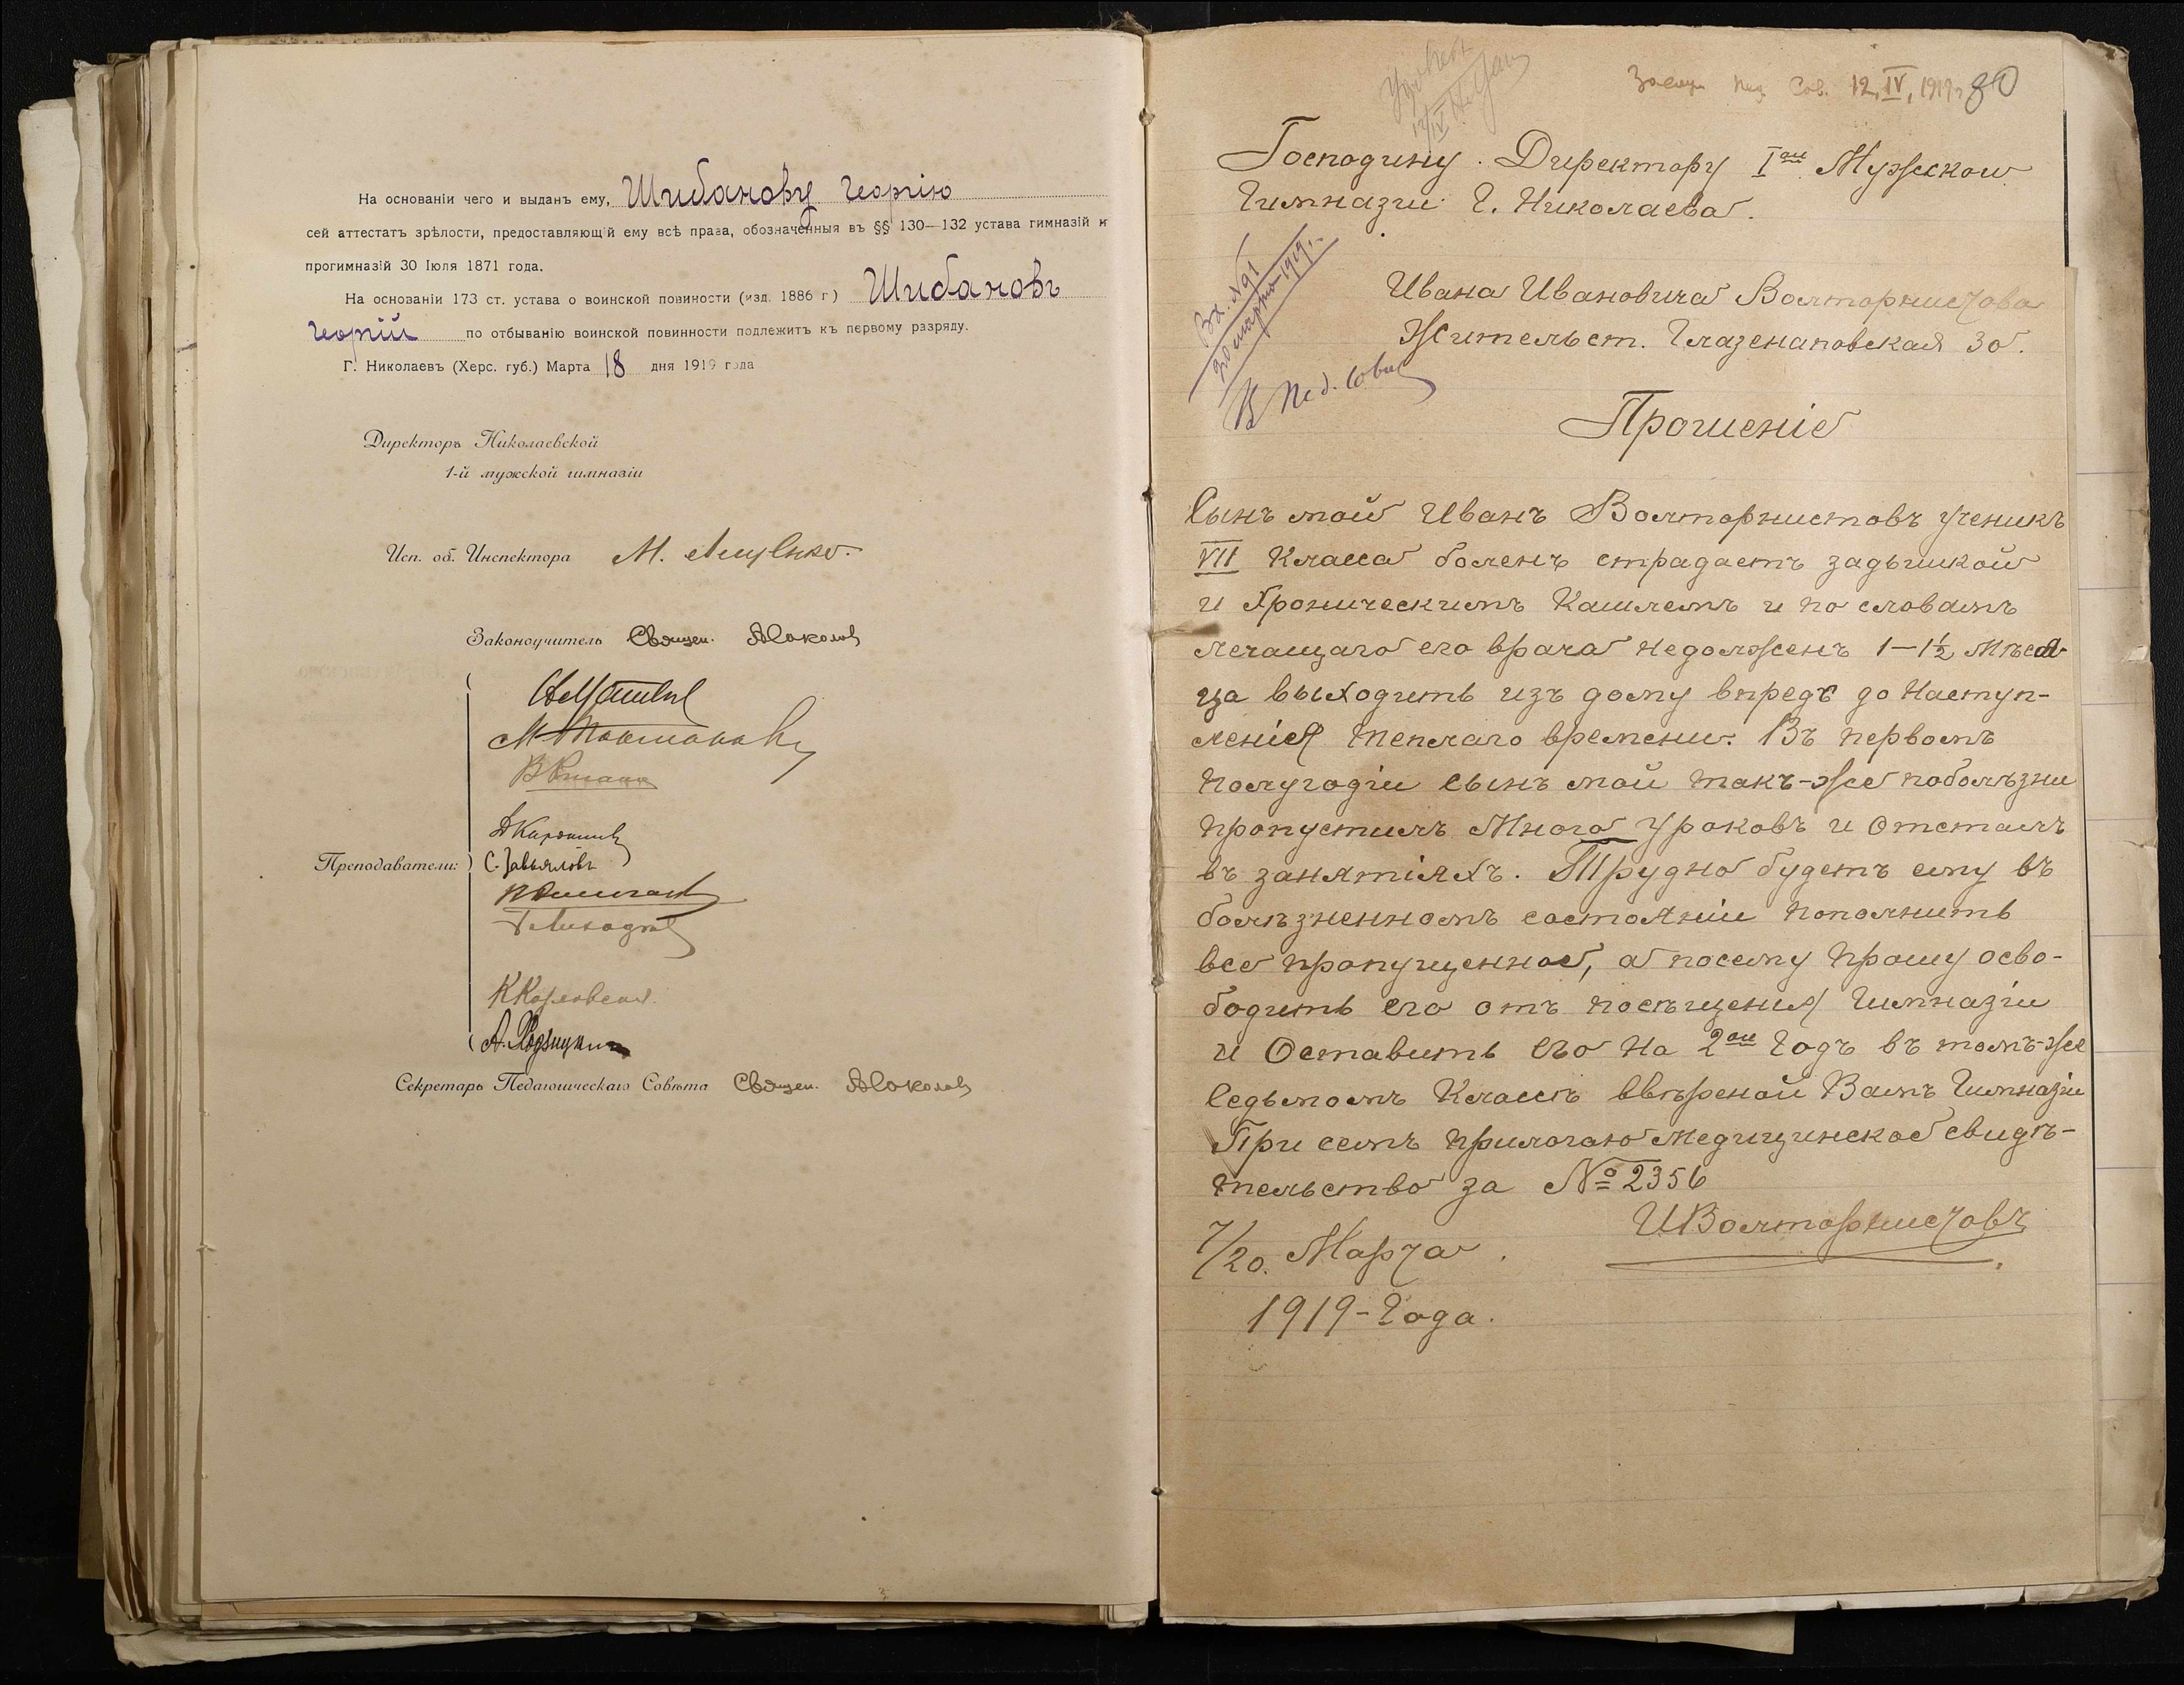 На основаніи чего и выданъ ему, Шибанову Георгію
сей аттестатъ зрѣлости, предоставляющій ему всѣ права, обозначенныя въ §§ 130—132 устава гимназій и
прогимназій 30 Іюля 1871 года.
На основаніи 173 ст. устава о воинской повиности (изд. 1886 г) Шибановъ
Георгій по отбыванію воинской повинности подлежитъ къ первому разряду.
Г. Николаевъ (Херс. губ.) Марта 18 дня 1919 года
Директоръ Николаевской
1-й мужской гимназіи
Исп. об. Инспектора М.
Законоучитель Священ. Соколовъ
Преподаватели:
С. Завьяловъ
Секретарь Педагогическаго Совѣта Священ. Соколовъ
Засѣд. Пед. Сов. 12, IV, 1919 г. 80
Господину Директору Iой Мужской
Гимназіи Г. Николаева.
Вх. №91
20 марта 1919 г.
В Пед. Совет
Ивана Ивановича Волторнистова
Жительст. Глазенаповская 30.
Прошеніе
Сынъ мой Иванъ Волторнистовъ ученикъ
VII Класса боленъ страдаетъ задышкой
и Хроническимъ Кашлемъ и по словамъ
лечащаго его врача недолженъ 1—1½ Мѣся-
ца выходить изъ дому впредь до Наступ-
ленія теплаго времени. Въ первомъ
полугодіи сынъ мой такъ-же поболѣзни
пропустилъ Много Уроковъ и Отсталъ
въ занятіяхъ. Трудно будетъ ему въ
болѣзненномъ состояніи пополнить
все пропущенное, а посему прошу осво-
бодить его отъ посѣщенія Гимназіи
и Оставить его На 2ой Годъ въ томъ-же
Седьмомъ Классѣ ввѣреной Вамъ Гимназіи
При семъ прилогаю медицинское свидѣ-
тельство за № 2356
ИВолторнистовъ
7/20. Марта.
1919-Года.